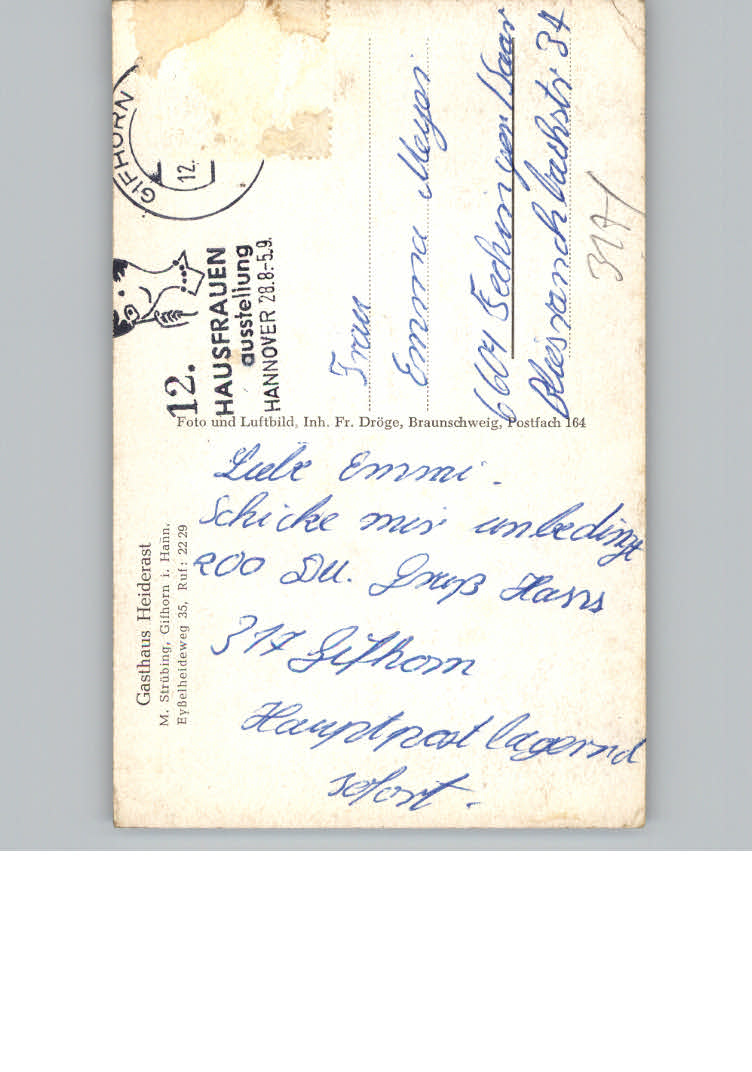 Gasthaus Heiderast
M. Strübing, Gifhorn i. Hann.
Eyßelheideweg 35, Ruf: 2229
Liebe Emmi.
Schicke mir unbedingt
200 DM. Gruß Hans
317 Gifhorn
Hauptpostlagernd
sofort.
Foto und Luftbild, Inh. Fr. Dröge, Braunschweig, Postfach 164
GIFHORN
12.
12.
HAUSFRAUEN
ausstellung
HANNOVER 28.8.-5.9.
Frau
Emma Meyer
6604 Fechingen/Saar
34
317